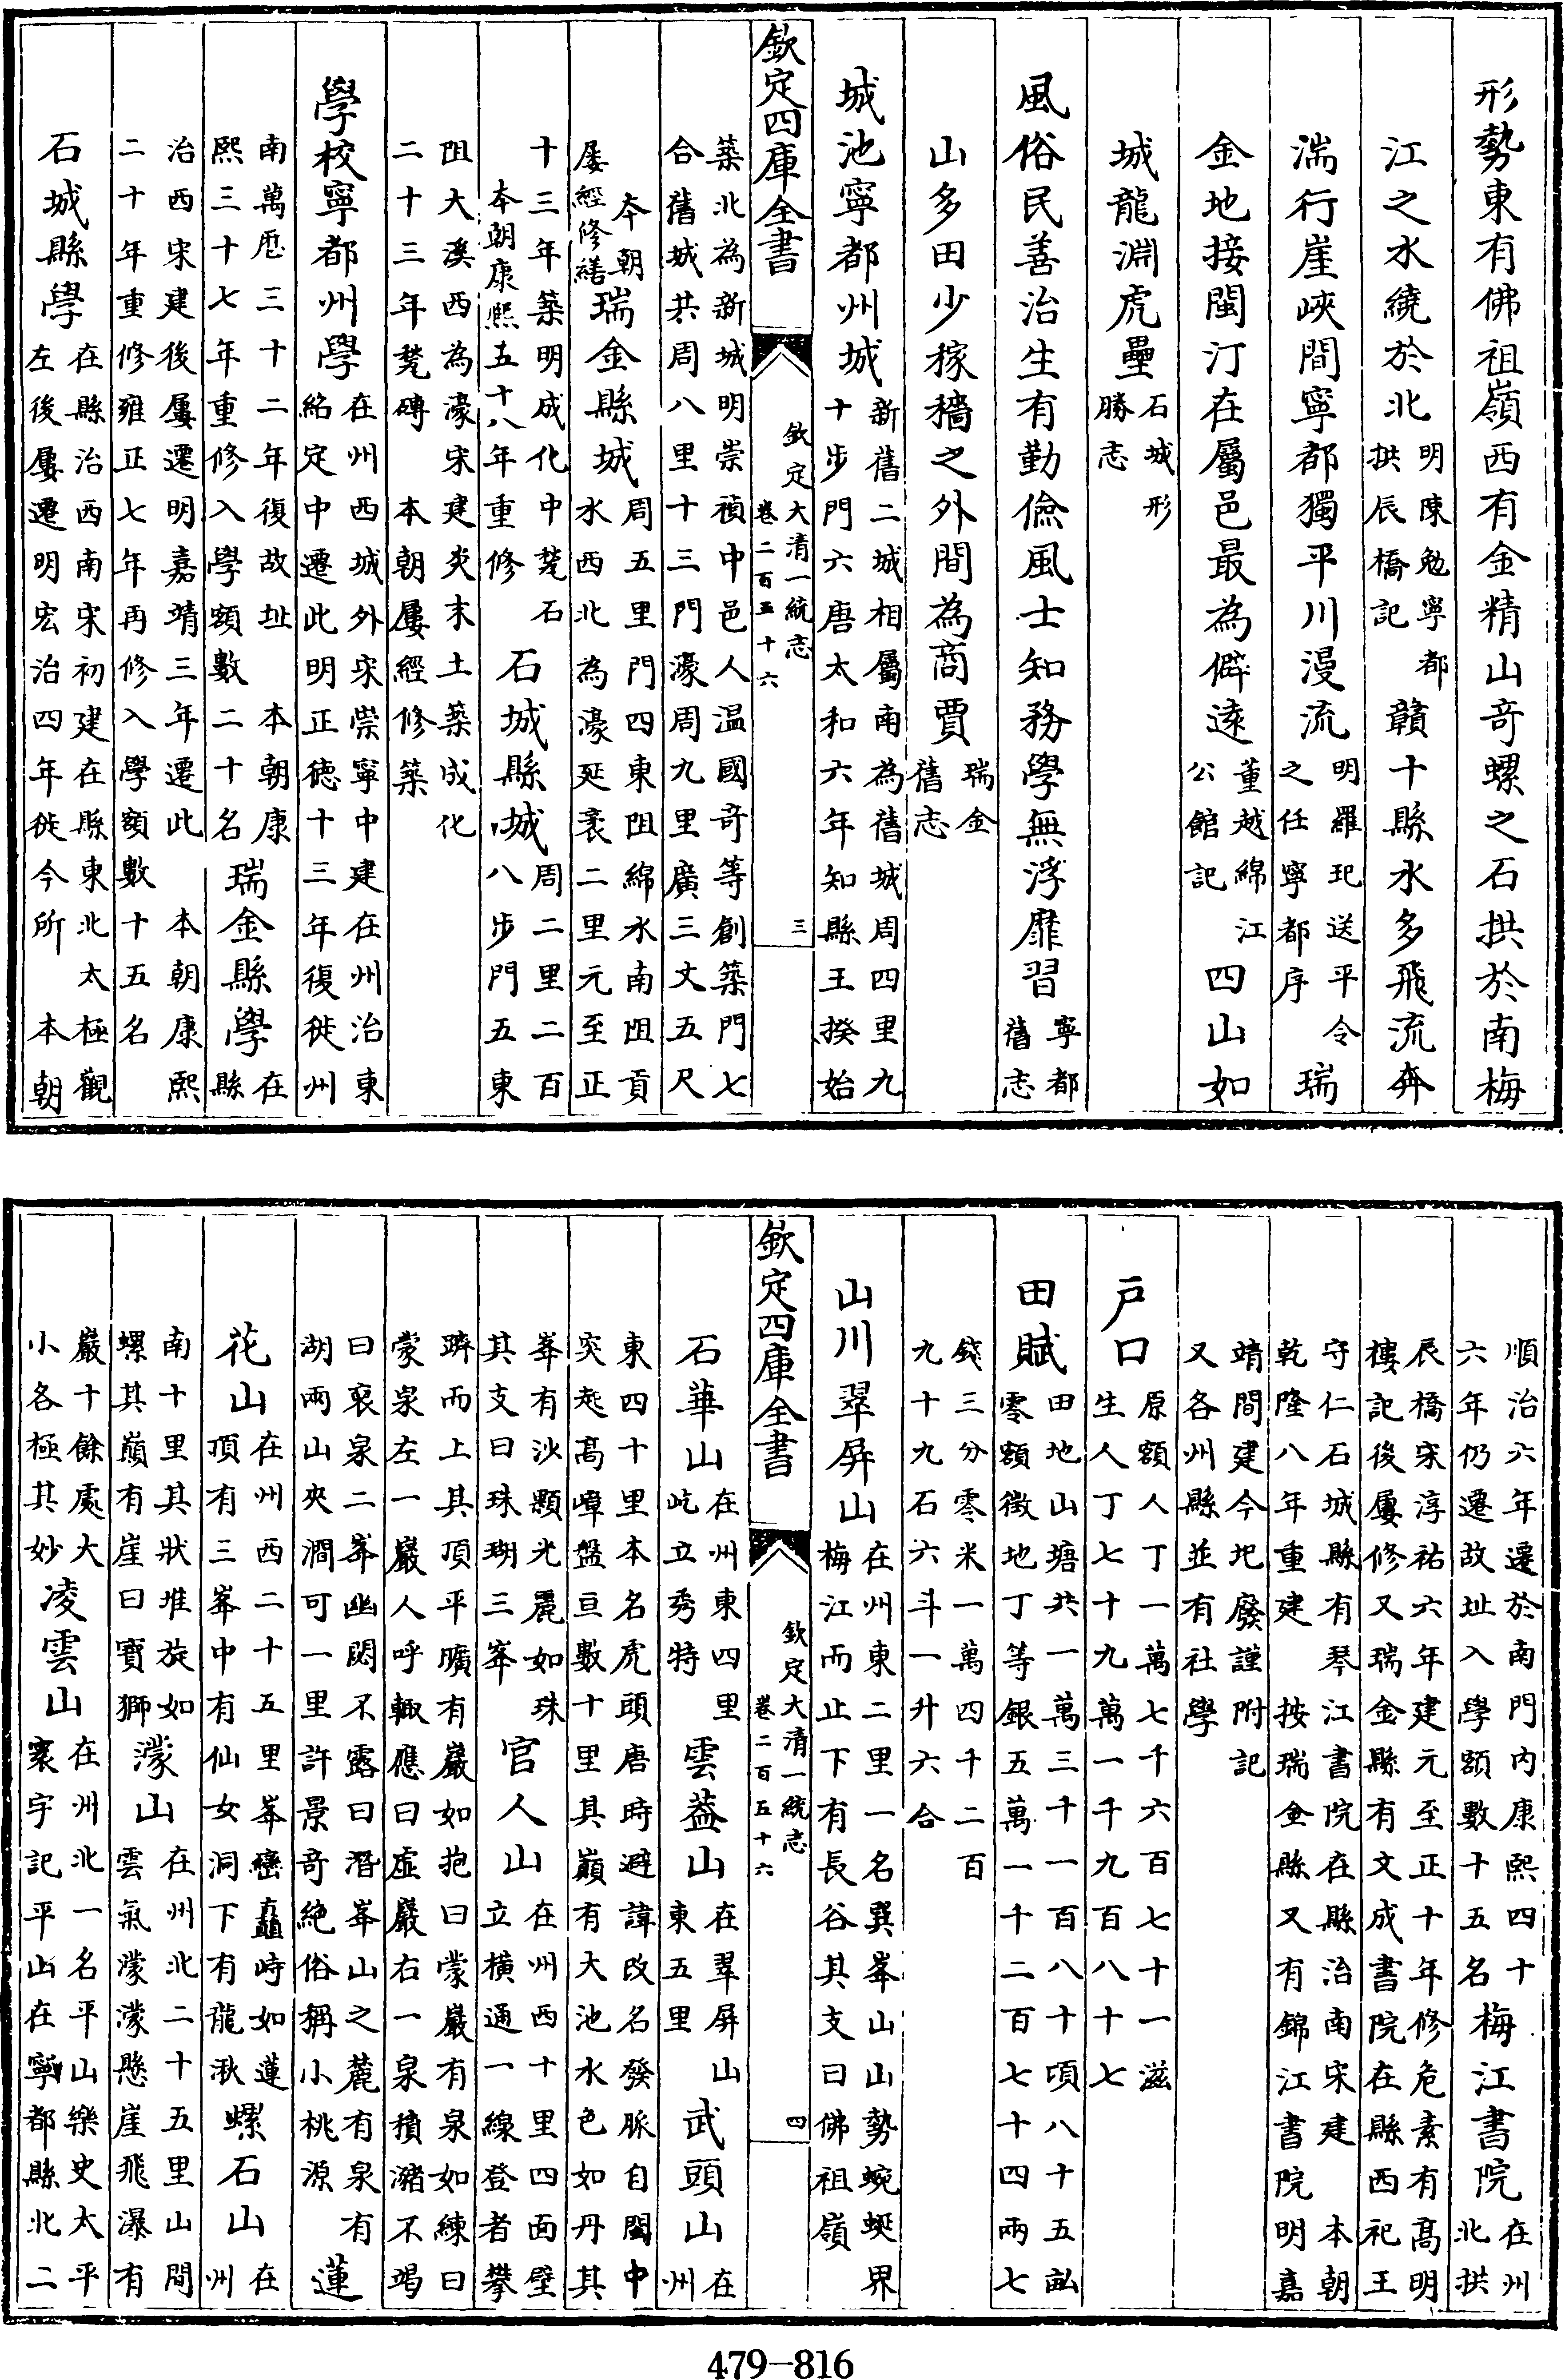 形勢東有佛祖嶺西有金精山竒螺之石拱於南梅
江之水繞於北明陳勉寧都拱辰橋記贛十縣水多飛流奔
湍行崖峽間寧都獨平川漫流明羅玘送平令之任寧都序瑞
金地接閩汀在屬邑最為僻逺董越綿江公館記四山如
城龍淵虎壘石城形勝志
風俗民善治生有勤儉風士知務學無浮靡習寧都舊志
山多田少稼穡之外間為商賈瑞金舊志
城池寧都州城新舊二城相屬南為舊城周四里九十步門六唐太和六年知縣王揆始
欽定四庫全書 欽定大清一統志 卷二百五十六 三
築北為新城明崇禎中邑人温國竒等創築門七合舊城共周八里十三門濠周九里廣三丈五尺
本朝屢經修繕瑞金縣城周五里門四東阻綿水南阻貢水西北為濠延袤二里元至正
十三年築明成化中甃石本朝康熙五十八年重修石城縣城周二里二百八步門五東
阻大溪西為濠宋建炎末土築成化二十三年甃磚本朝屢經修築
學校寧都州學在州西城外宋崇寧中建在州治東紹定中遷此明正徳十三年復徙州
南萬厯三十二年復故址本朝康熙三十七年重修入學額數二十名瑞金縣學在縣
治西宋建後屢遷明嘉靖三年遷此本朝康熙二十年重修雍正七年再修入學額數十五名
石城縣學在縣治西南宋初建在縣東北太極觀左後屢遷明宏治四年徙今所本朝
順治六年遷於南門内康熙四十六年仍遷故址入學額數十五名梅江書院在州北拱
辰橋宋淳祐六年建元至正十年修危素有髙明樓記後屢修又瑞金縣有文成書院在縣西祀王
守仁石城縣有琴江書院在縣治南宋建本朝乾隆八年重建按瑞金縣又有錦江書院明嘉
靖間建今圯廢謹附記又各州縣並有社學
戸口原額人丁一萬七千六百七十一滋生人丁七十九萬一千九百八十七
田賦田地山塘共一萬三千一百八十頃八十五畆零額徴地丁等銀五萬一千二百七十四兩七
錢三分零米一萬四千二百九十九石六斗一升六合
山川翠屏山在州東二里一名巽峯山山勢蜿蜒界梅江而止下有長谷其支曰佛祖嶺
欽定四庫全書 欽定大清一統志 卷二百五十六 四
石華山在州東四里屹立秀特雲葢山在翠屏山東五里武頭山在州
東四十里本名虎頭唐時避諱改名發脈自閩中突起髙嶂盤亘數十里其巔有大池水色如丹其
峯有沙顆光麗如珠其支曰珠瑚三峯官人山在州西十里四面壁立横通一線登者攀
躋而上其頂平曠有巖如抱曰蒙巖有泉如練曰蒙泉左一巖人呼輙應曰虚巖右一泉積瀦不竭
曰裒泉二峯幽閟不露曰潛峯山之麓有泉有湖兩山夾澗可一里許景竒絶俗稱小桃源蓮
花山在州西二十五里峯巒矗峙如蓮頂有三峯中有仙女洞下有龍湫螺石山在州
南十里其狀堆旋如螺其巔有崖曰寳獅濛山在州北二十五里山間雲氣濛濛懸崖飛瀑有
巖十餘處大小各極其妙凌雲山在州北一名平山樂史太平寰宇記平山在寧都縣北二
479-816